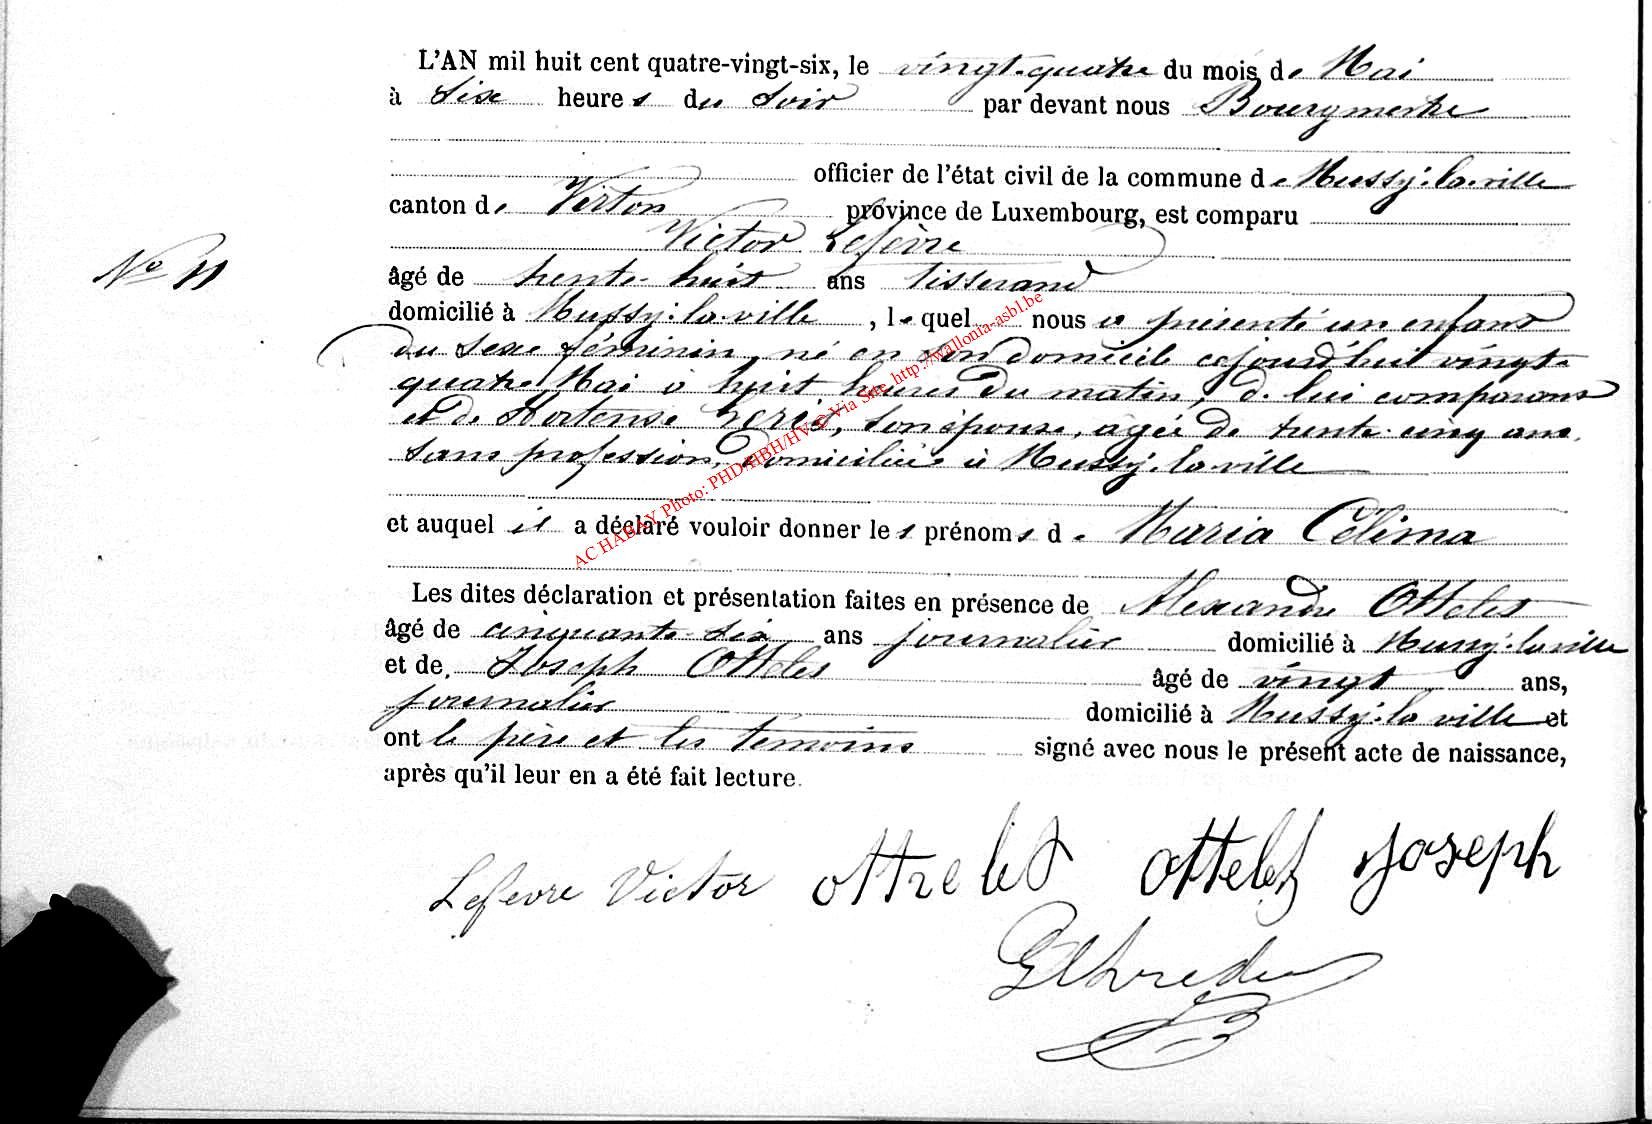 L'AN mil huit cent quatre-vingt-six, le vingt-quatre du mois de Mai
à Six heures du Soir par devant nous Bourgmestre
officier de l'état civil de la commune de Mussy-la-ville
canton de Virton province de Luxembourg, est comparu
Victor Lefèvre
N° 11
âgé de trente-huit ans Tisserand
domicilié à Mussy-la-ville, lequel nous a présenté un enfant
du sexe féminin, né en son domicile cejourd'hui vingt-
quatre Mai à huit heures du matin, de lui comparant
et de Hortense, son épouse, agée de trente-cinq ans,
sans profession, domiciliée à Mussy-la-ville
et auquel il a déclaré vouloir donner les prénoms de Maria Célima
Les dites déclaration et présentation faites en présence de Alexandre Ottelet
âgé de cinquante-six ans journalier domicilié à Mussy-la-ville
et de Joseph Ottelet âgé de vingt ans,
journalier domicilié à Mussy-la ville et
ont le père et les témoins signé avec nous le présent acte de naissance,
après qu'il leur en a été fait lecture.
Lefevre Victor ottelet ottelet joseph
AC HABAY Photo: PHD/HBH/HV © Via Site http://wallonia-asbl.be